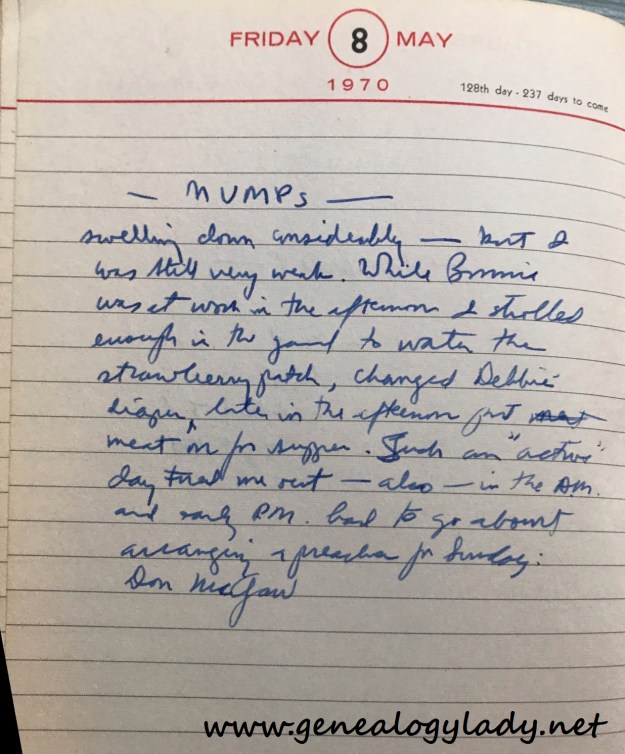 FRIDAY 8 MAY
1970
128th day - 237 days to come
— MUMPs —
swelling down considerably — but I
was still very weak. While Bonnie
was at work in the afternoon I strolled
enough in the yard to water the
strawberry patch, changed Debbie's
diaper, later in the afternoon put meat
meat on for supper. Such an "active"
day tired me out — also — in the AM.
and early P.M. had to go about
arranging a preacher for Sunday:
Don McGaw
www.genealogylady.net